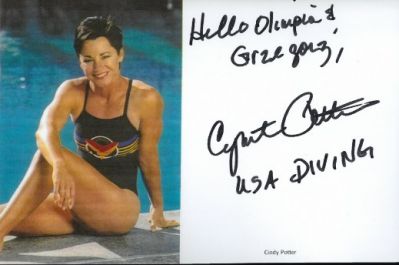 Hello Olimpia &
Grzegorz,
Cynthia Potter
USA DIVING
Cindy Potter